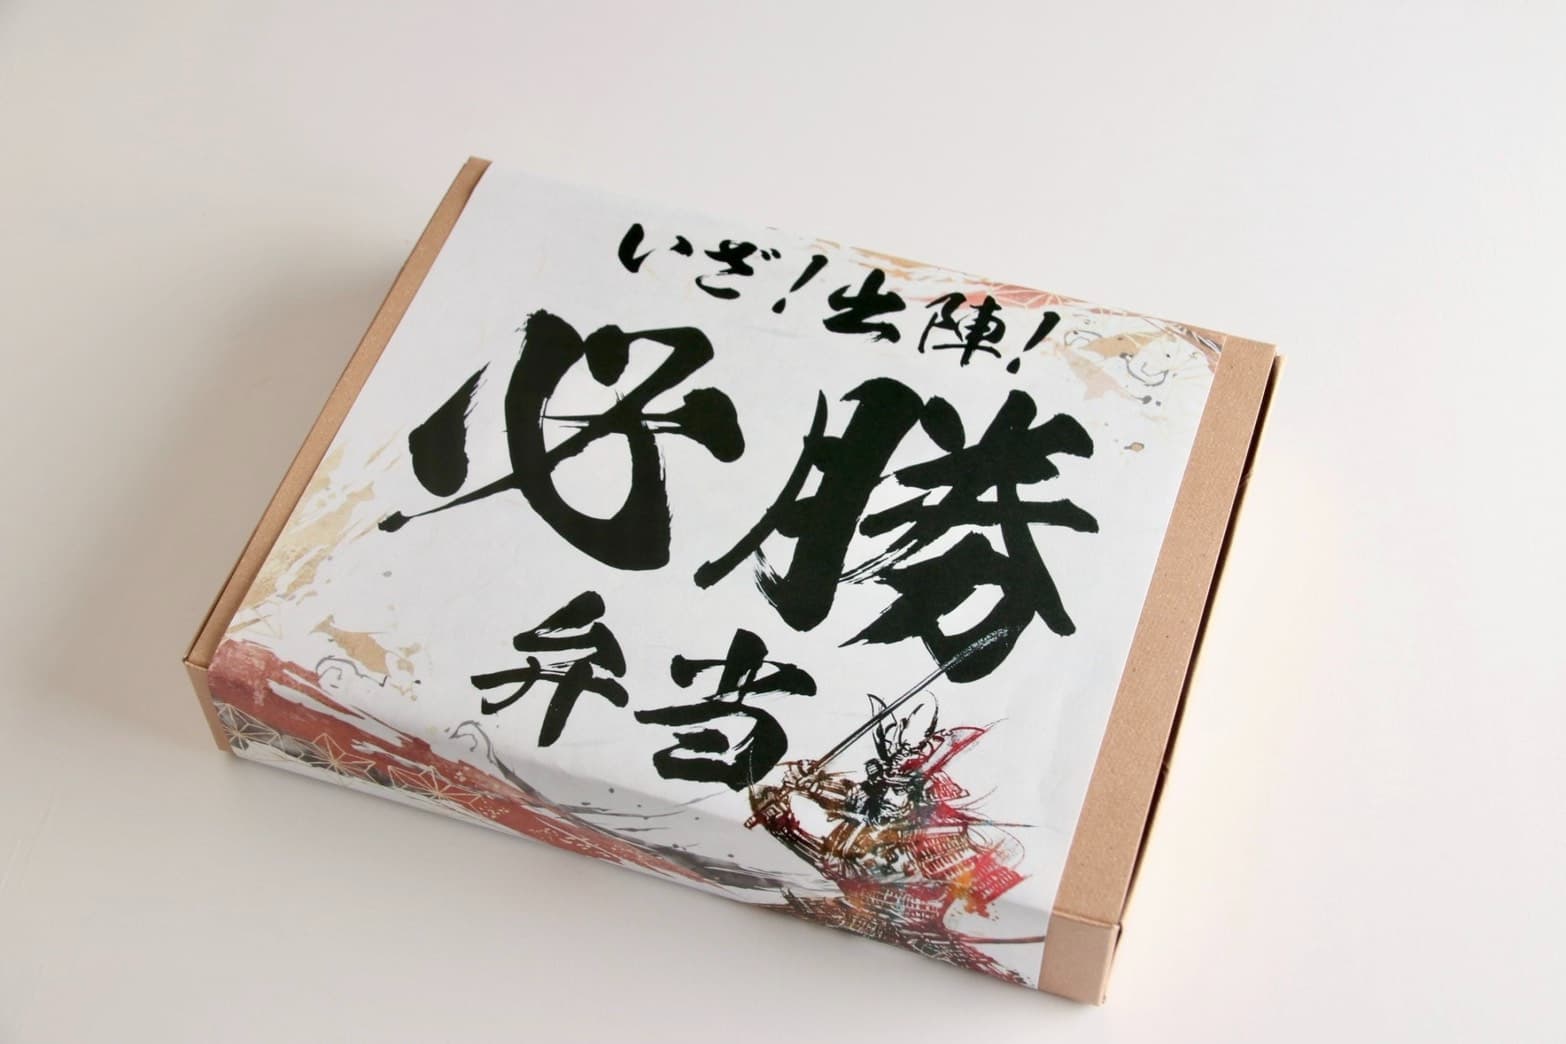 いざ！出陣！
必勝
弁当